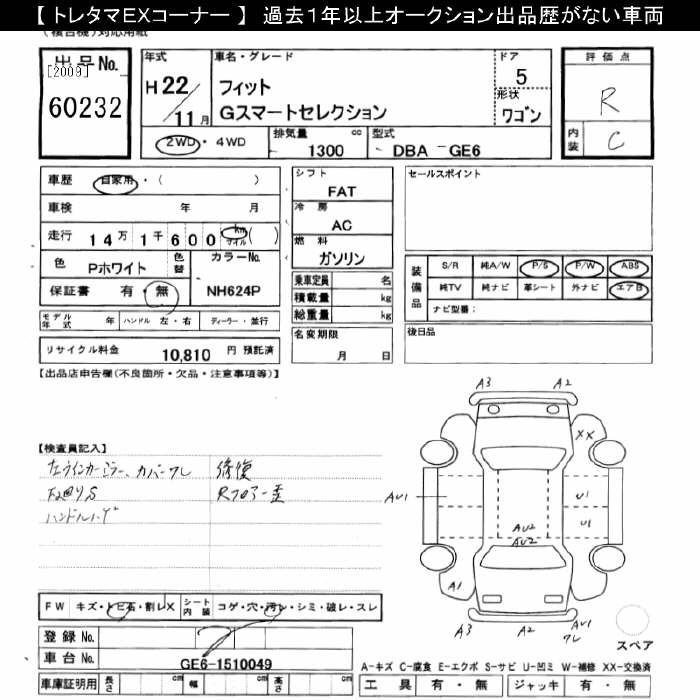 【 トレタマEXコーナー 】 過去1年以上オークション出品歴がない車両
出品No.
[2009]
60232
年式
H22/11月
車名・グレード
フィット
Gスマートセレクション
ドア
5
形状
ワゴン
評価点
R
内装
C
2WD・4WD
排気量 cc
1300
型式
DBA－GE6
車歴
自家用・( )
車検 年 月
走行 14万1千600 km マイル ( )
色
Pホワイト
色替
カラーNo.
NH624P
保証書 有・無
シフト
FAT
冷房
AC
燃料
ガソリン
乗車定員 名
積載量 kg
総重量 kg
セールスポイント
装備品
S/R 純A/W P/S P/W ABS
純TV 純ナビ 革シート 外ナビ エアB
ナビ型番：
モデル年式 年
ハンドル 左・右
ディーラー・並行
名変期限
月 日
後日品
リサイクル料金 10,810 円 預託済
【出品店申告欄(不良箇所・欠品・注意事項等)】
【検査員記入】
修復
A3 A2
XX
AU1
U1
U1
AU2
AU2
A1
A3 A2 AU1
ワレ
スペア
FW キズ・トビ石・割レX
シート内装 コゲ・穴・汚レ・シミ・破レ・スレ
登録No.
車台No.
GE6-1510049
車庫証明用 長さ cm 幅 cm 高さ cm
A-キズ C-腐食 E-エクボ S-サビ U-凹ミ W-補修 XX-交換済
工具 有・無 ジャッキ 有・無